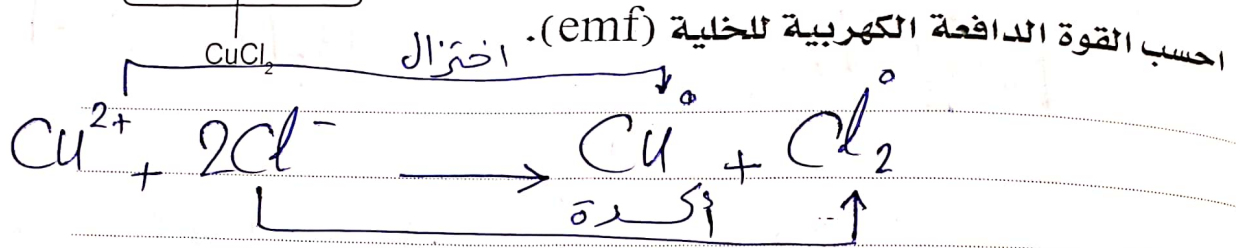 CuCl₂
احسب القوة الدافعة الكهربية للخلية (emf).
اختزال
Cu²⁺ + 2Cl⁻ → Cu⁰ + Cl₂⁰
أكسدة